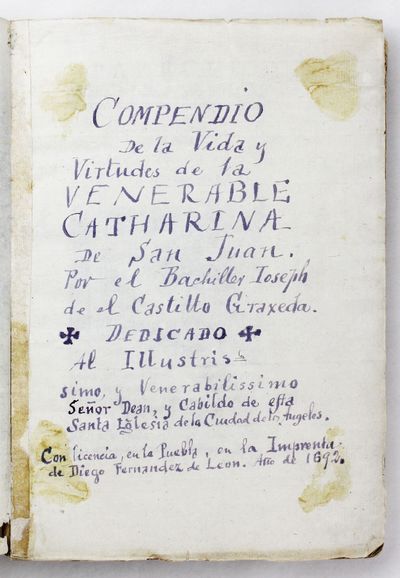 COMPENDIO
De la Vida y
Virtudes de la
VENERABLE
CATHARINA
De San Juan.
Por el Bachiller Ioseph
de el Castillo Graxeda.
✠ DEDICADO ✠
Al Illustris
simo, y Venerabilissimo
Señor Dean, y Cabildo de esta
Santa Iglesia de la Ciudad de los Angeles.
Con licencia, en la Puebla, en la Imprenta
de Diego Fernandez de Leon. Año de 1692.